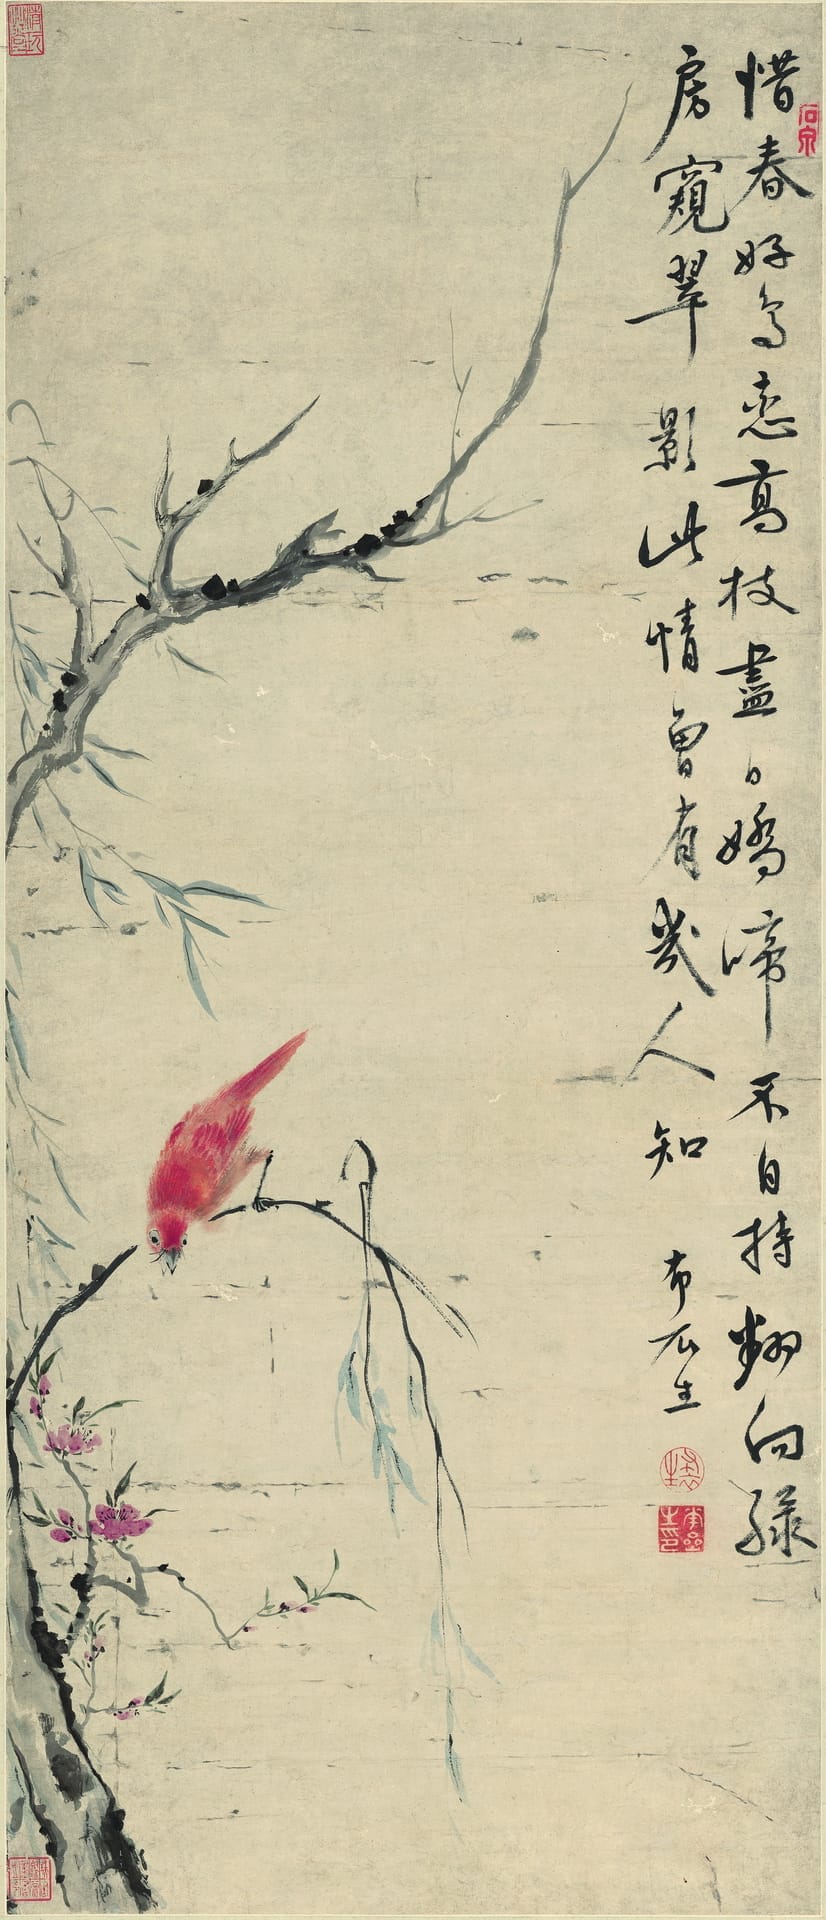 惜春好鳥戀高枝盡日嬌啼不自持翻向綠
房窺翠影此情曾有幾人知 布衣生